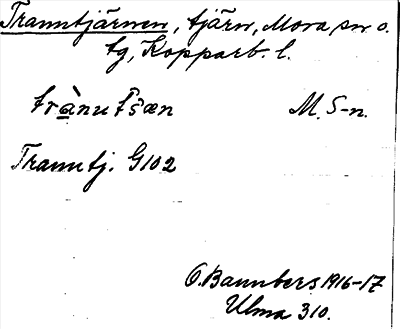 Tranutjärnen, tjärn, Mora, sn o.
tg, Kopparb. l.
trànut͡sæn M. S-n.
Tranutj. G102
O. Bannbers 1916-17
Ulma 310.